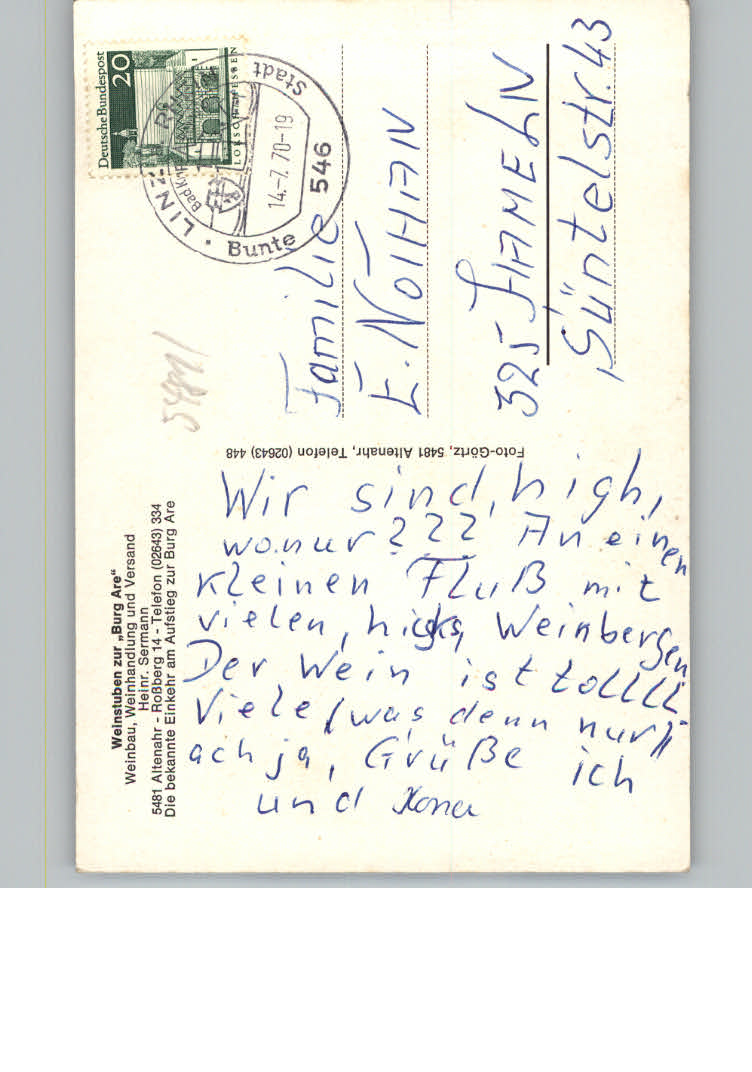 Weinstuben zur „Burg Are“
Weinbau, Weinhandlung und Versand
Heinr. Sermann
5481 Altenahr - Roßberg 14 - Telefon (02643) 334
Die bekannte Einkehr am Aufstieg zur Burg Are
Wir sind, high,
wo nur??? An einen
kleinen Fluß mit
vielen, hicks, Weinbergen
Der Wein ist tollllll
Viele, was denn nur,
ach ja, Grüße ich
und
Foto-Görtz, 5481 Altenahr, Telefon (02643) 448
Deutsche Bundespost
20
LORSCH/HESSEN
LINZ
Bunte Stadt
14.-7.70-19
546
Familie
E. Nothan
325 Hameln
Süntelstr. 43